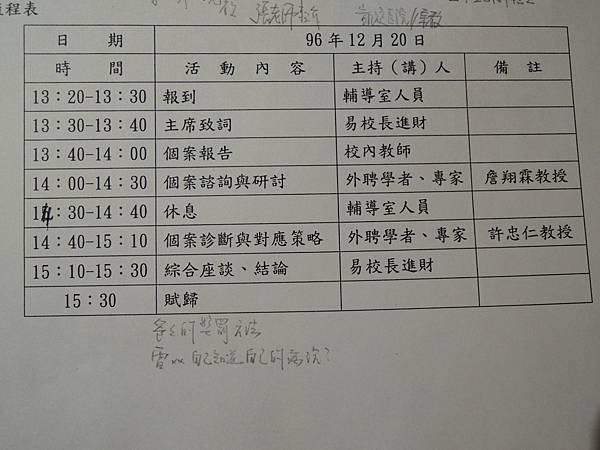 程表
張老師
日　　期　96年12月20日
時　　間　活　動　內　容　主持(講)人　備　註
13：20-13：30　報到　輔導室人員
13：30-13：40　主席致詞　易校長進財
13：40-14：00　個案報告　校內教師
14：00-14：30　個案諮詢與研討　外聘學者、專家　詹翔霖教授
14：30-14：40　休息　輔導室人員
14：40-15：10　個案診斷與對應策略　外聘學者、專家　許忠仁教授
15：10-15：30　綜合座談、結論　易校長進財
15：30　賦歸
的獎罰方法
自己知道自己的